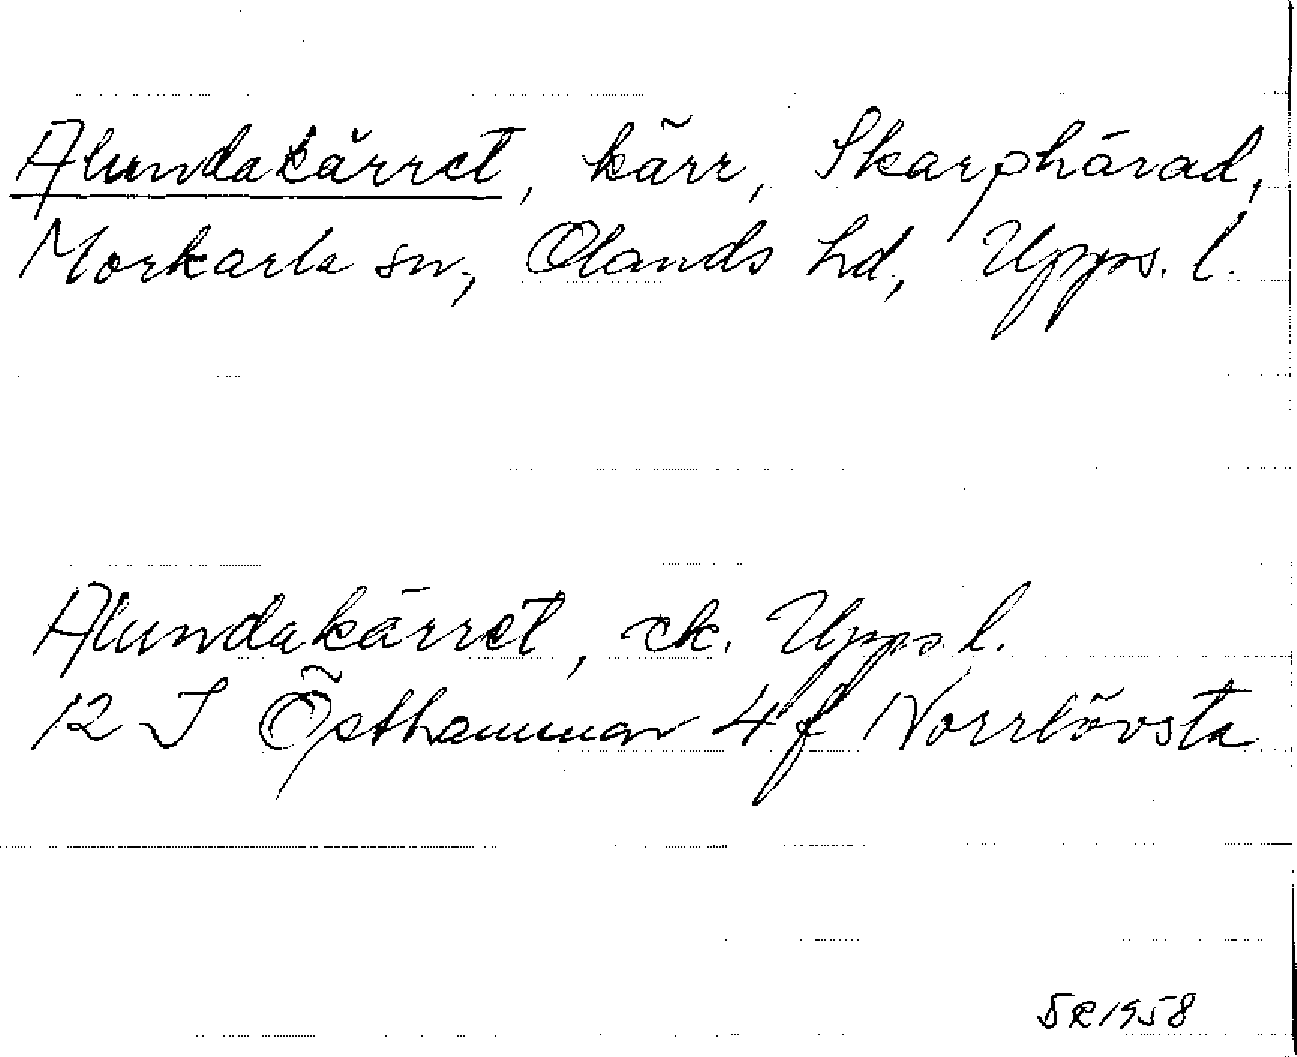 Alundakärret, kärr, Skarphärad,
Morkarla sn, Olands hd, Upps. l.
Alundakärret, ek. Upps. l.
12 I Östhammar 4 f Norrlövsta
SR 1958